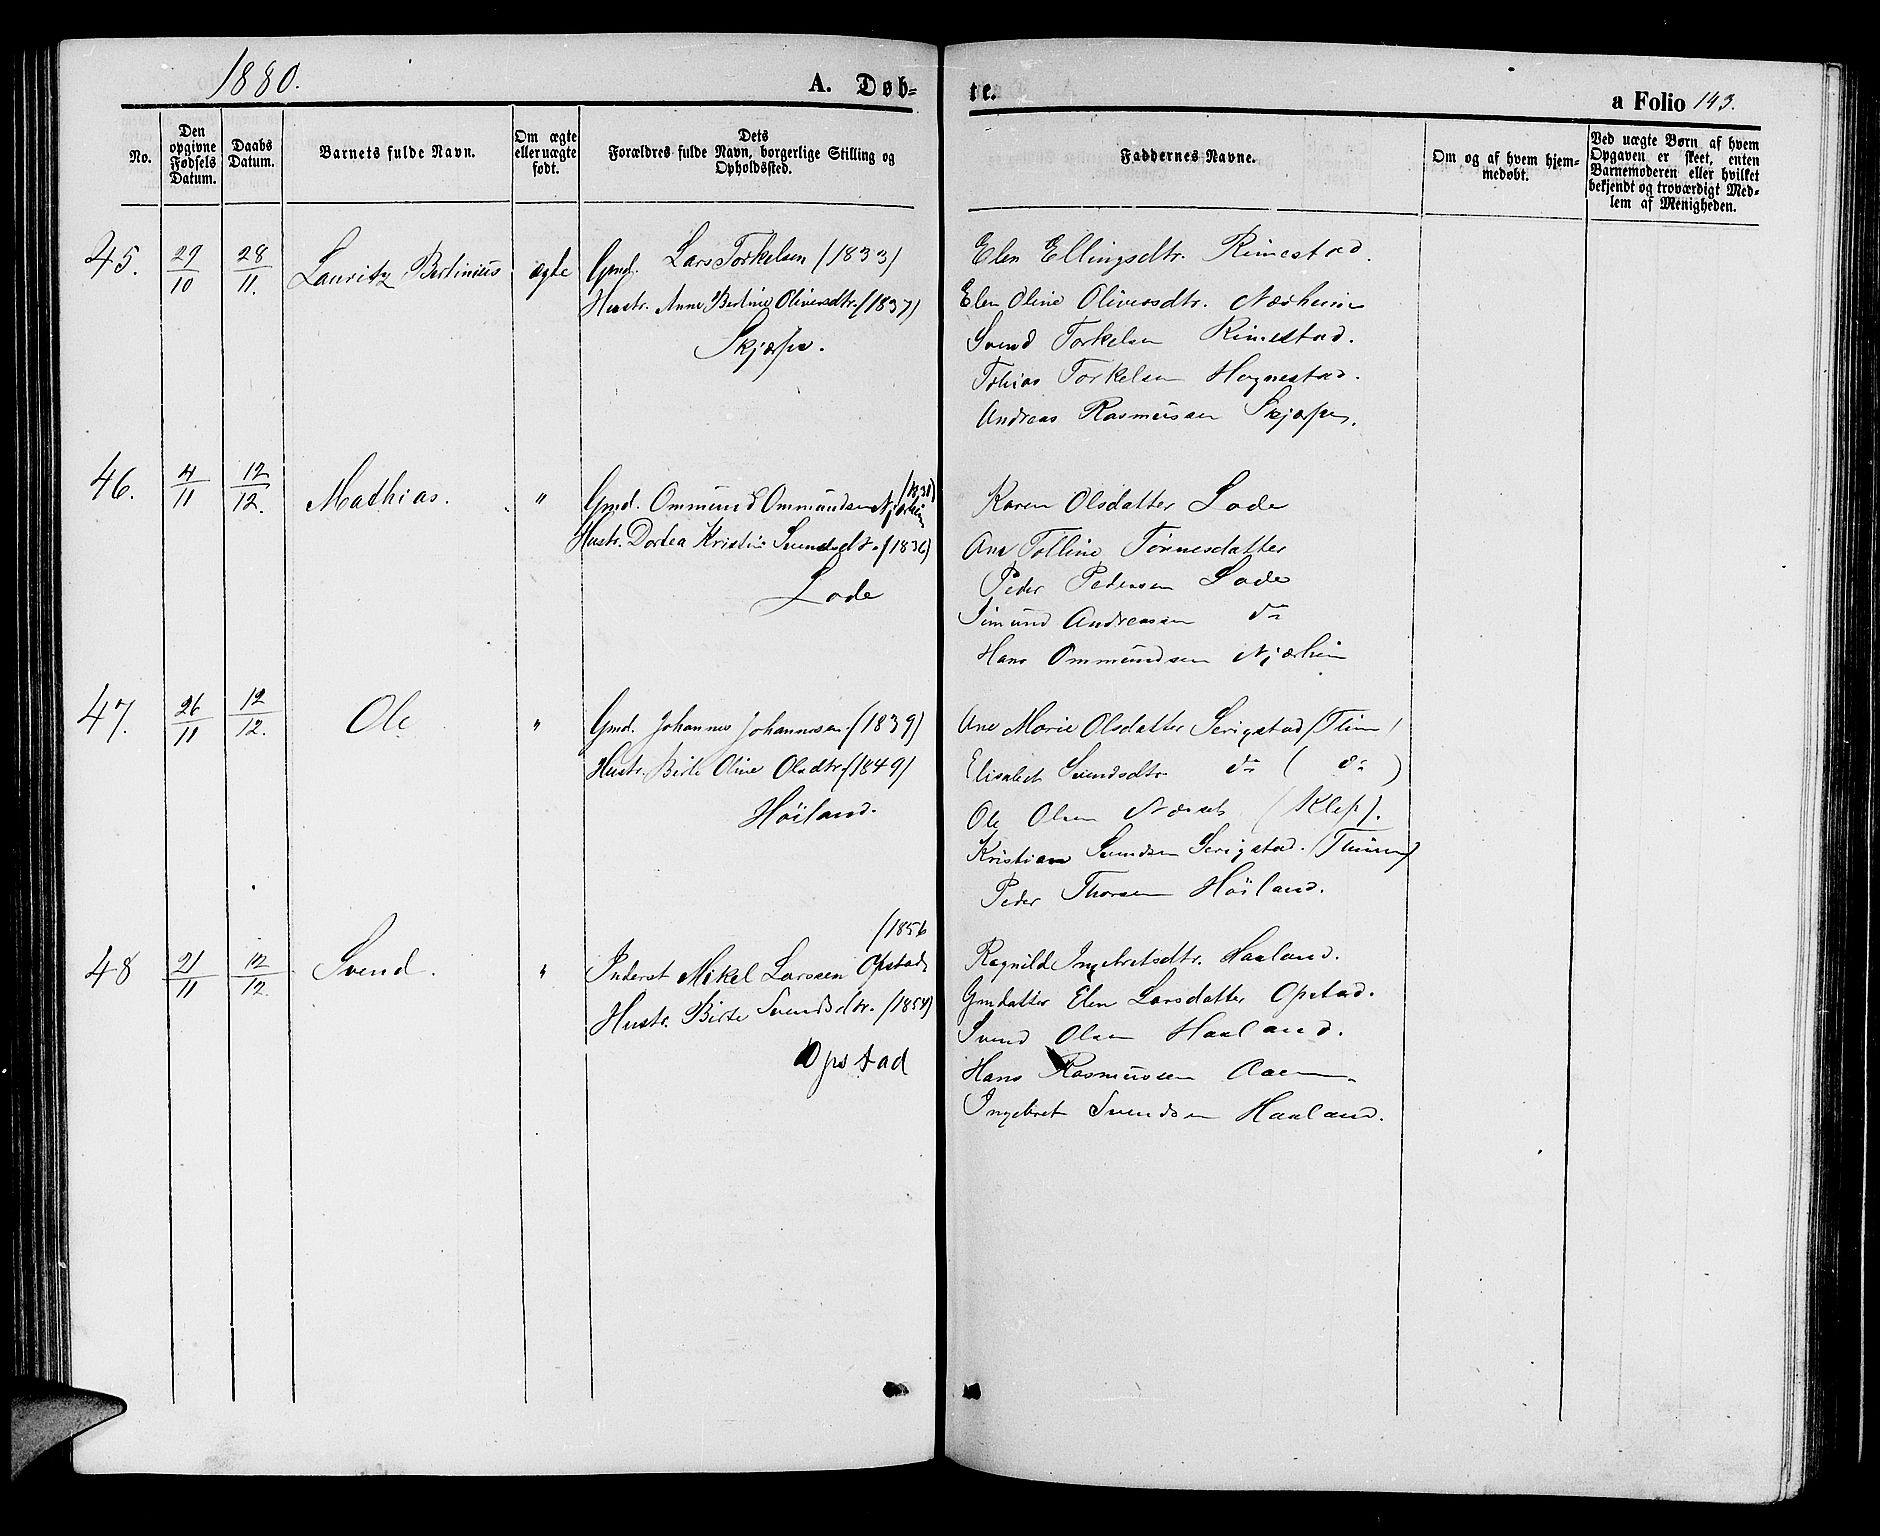 1880. A. Døb-
te. a Folio 143.
No.
Den opgivne Fødsels Datum.
Daabs Datum.
Barnets fulde Navn.
Om ægte eller uægte født.
Dets Forældres fulde Navn, borgerlige Stilling og Opholdssted.
Faddernes Navne.
Om og af hvem hjemmedøbt.
Ved uægte Børn af hvem Opgaven er skeet, enten Barnemoderen eller hvilket bekjendt og troværdigt Medlem af Menigheden.
45. 29/10 28/11. Lauritz Bertinius ægte Gmd. Lars Torkelsen (1833)
Hustr. Anne Bertine Oliversdtr. (1837)
Skjærpe.
Elen Ellingsdtr. Rimestad.
Elen Oline Oliversdtr. Nærheim
Svend Torkelsen Rimestad.
Tobias Torkelsen Hognestad.
Andreas Rasmussen Skjærpe.
46. 4/11 12/12. Mathias. " Gmd. Ommund Ommundsen Njærheim
Hustr. Dortea Kristine Svendsdtr. (1836)
Lode
Karen Olsdatter Lode
Ane Tolline Tønnesdatter
Peder Pedersen Lode
Simund Andreassen do
Hans Ommundsen Njærheim
47. 26/11 12/12. Ole " Gmd. Johannes Johannessen (1839)
Hustr. Birte Oline Olsdtr. (1849)
Höiland.
Ane Marie Olsdatter Serigstad (Thime)
Elisabet Svendsdtr. do ( do )
Ole Olsen Næsset (Klep).
Kristian Svendsen Serigstad. (Thime)
Peder Thorsen Höiland.
48 21/11 12/12. Svend. " Inderst Mikel Larssen Opstad (1856
Hustr. Birte Svendsdtr. (1854)
Opstad
Ragnilde Ingebretsdtr. Haaland.
Gmdatter Elen Larsdatter Opstad.
Svend Olsen Haaland.
Hans Rasmussen
Ingebret Svendsen Haaland.